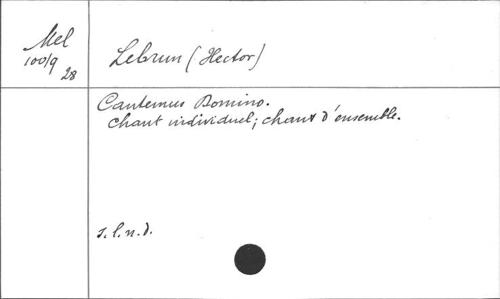 Mel
100/9
28
Lebrun (Hector)
Cantemus Domino.
Chant individuel; chant d'ensemble.
s.l.n.d.